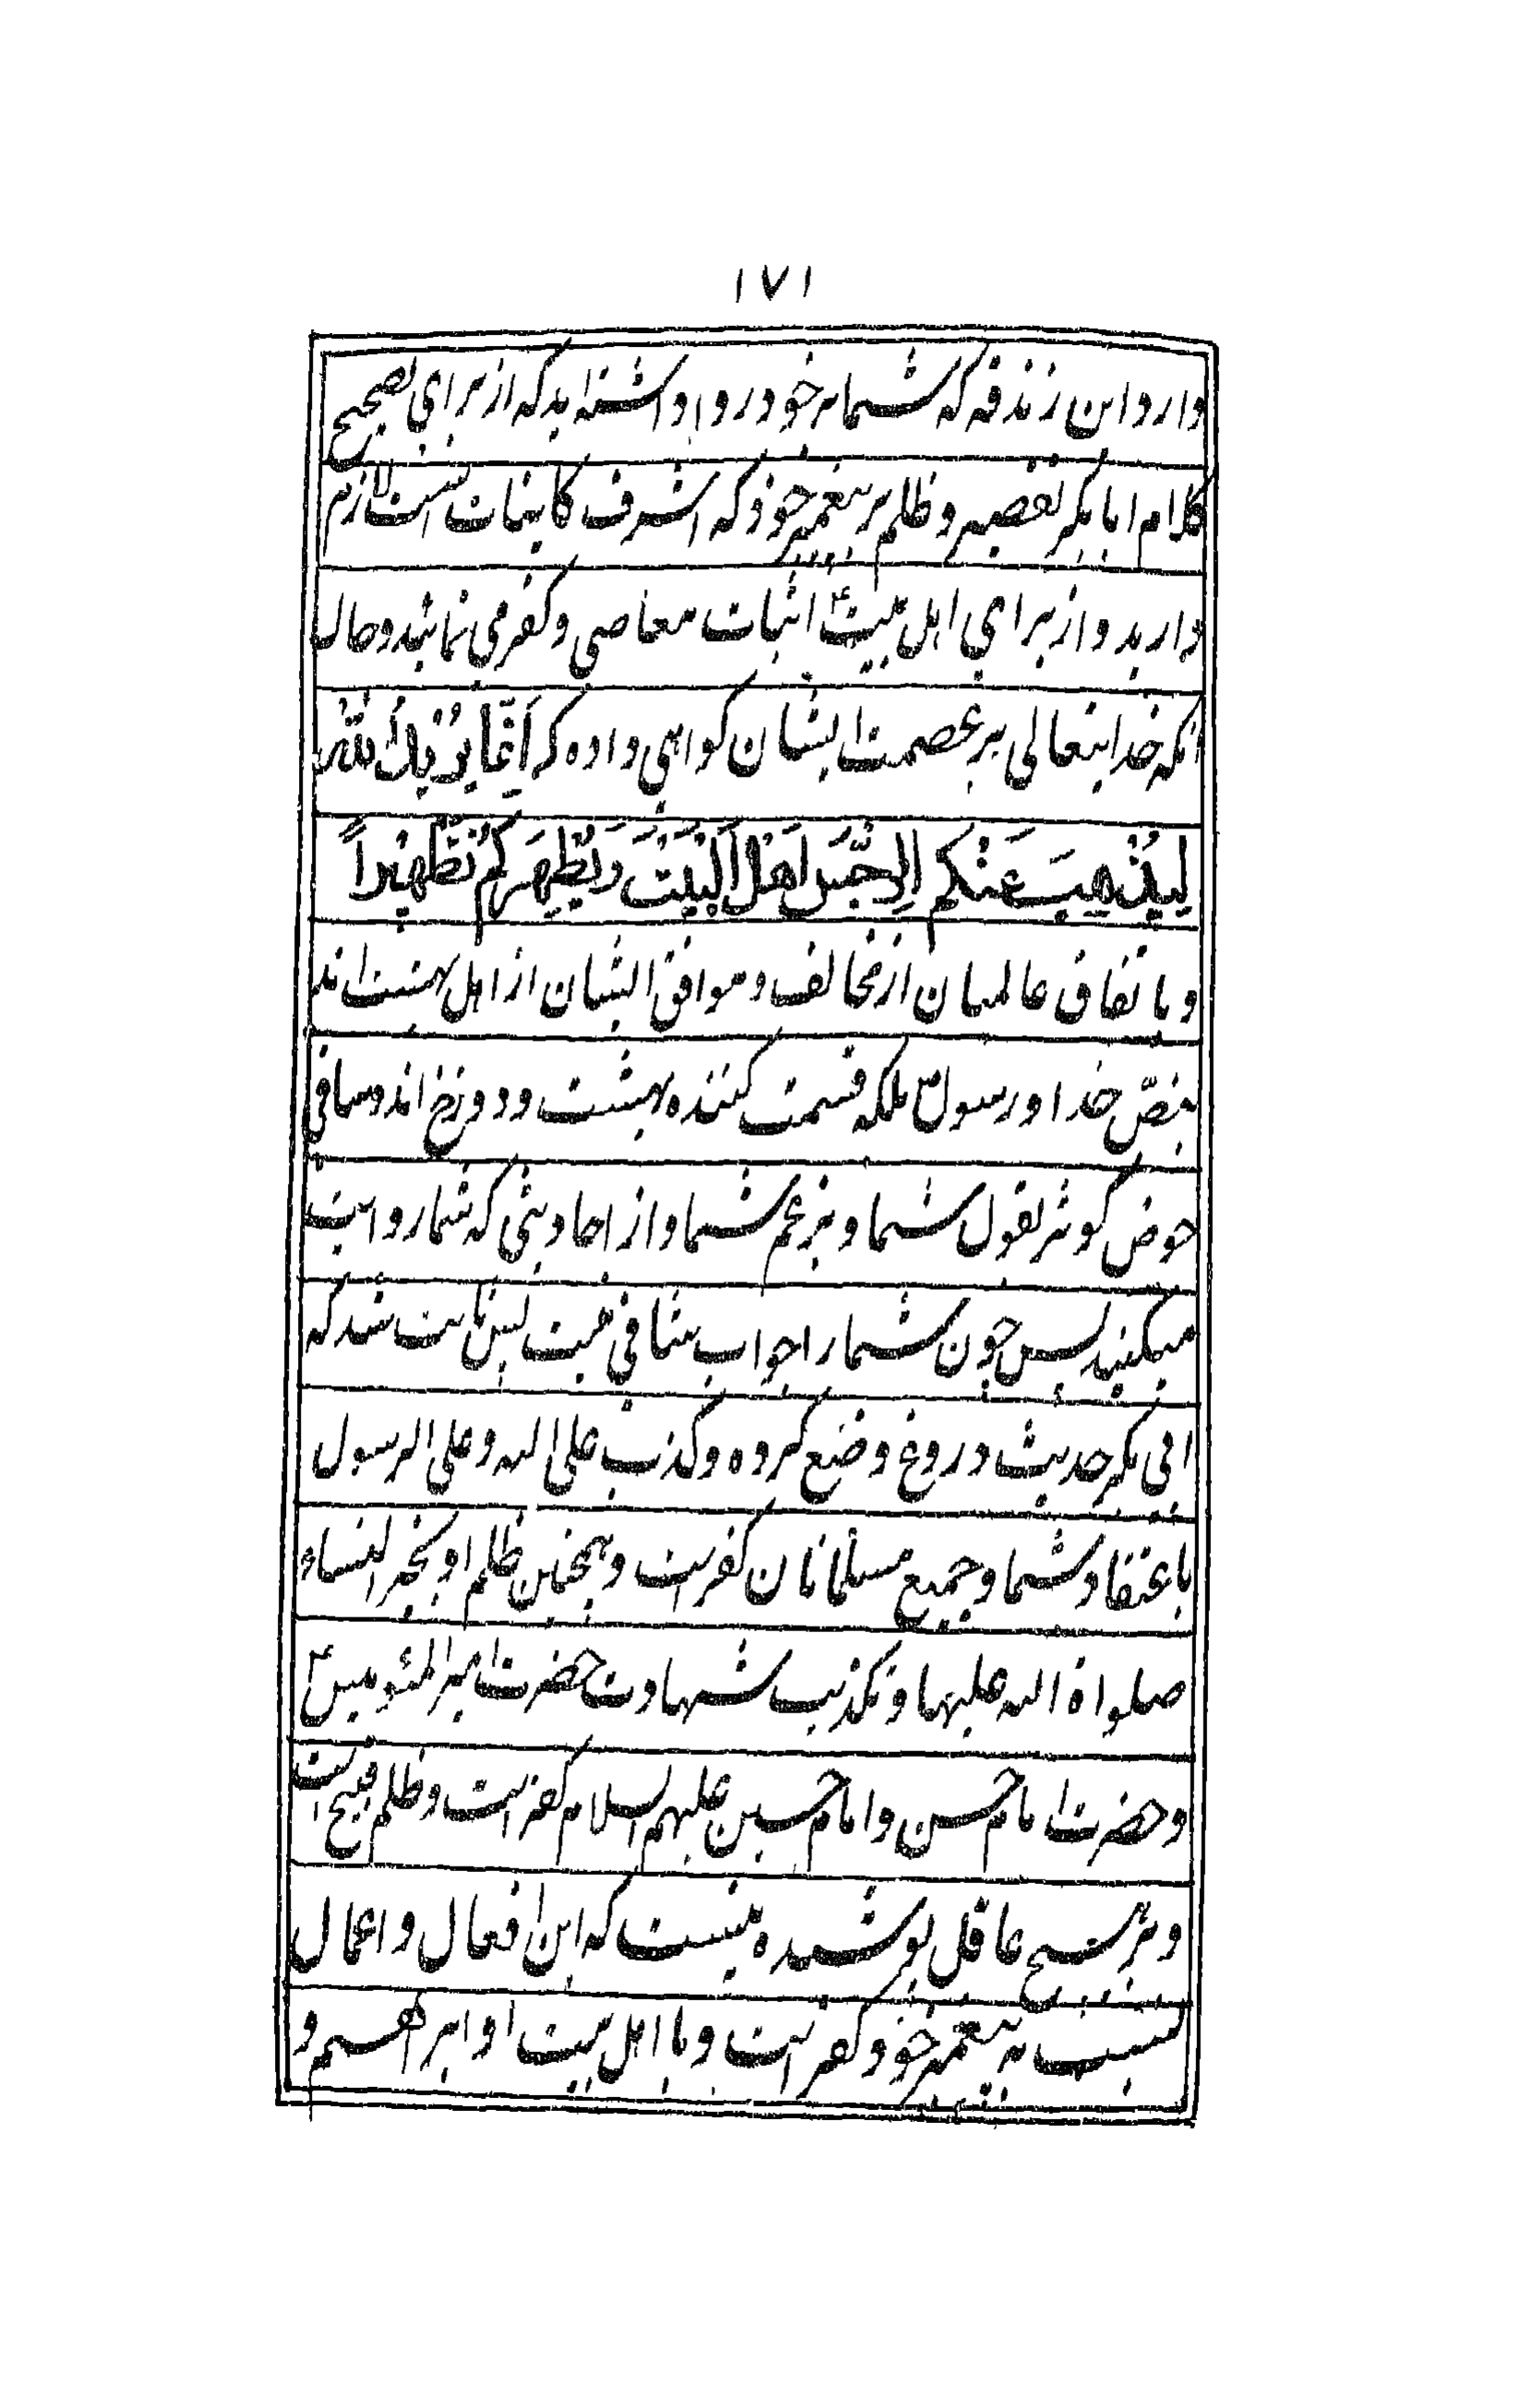 ۱۷۱
دارد و این زندقه که شما بر خود روا داشته اید که از برای تصحیح
کلام ابابکر تقصیر و ظلم بر پیغمبر خود که اشرف کاینات است لازم
دارید و از برای اهل بیت ع اثبات معاصی و کفر می نمائید و حال
آنکه خدایتعالی بر عصمت ایشان گواهی داده که اِنَّمَا یُرِیْدُ اللّٰهُ
لِیُذْهِبَ عَنْکُم الرِّجْسَ اَهْلَ الْبَیْتِ وَیُطَهِّرَکُمْ تَطْهِیْراً
و باتفاق عالمیان از مخالف و موافق ایشان از اهل بهشت اند
بنصّ خدا و رسول ص بلکه قسمت کننده بهشت و دوزخ اند و ساقی
حوض کوثر بقول شما و بزعم شما و از احادیثی که شما روایت
میکنید پس چون شما را جواب شافی نیست پس ثابت شد که
ابی بکر حدیث دروغ وضع کرده و کذب علی الله و علی الرسول
باعتقاد شما و جمیع مسلمانان کفر است و همچنین ظلم او بخیر النساء
صلواة الله علیها و تکذیب شهادت حضرت امیر المئومنین ع
و حضرت امام حسن و امام حسین علیهم السلام کفر است و ظلم قبیح است
و بر هیچ عاقل پوشیده نیست که این افعال و اعمال
نسبت به پیغمبر خود کفر است و با اهل بیت او ابراهیم و